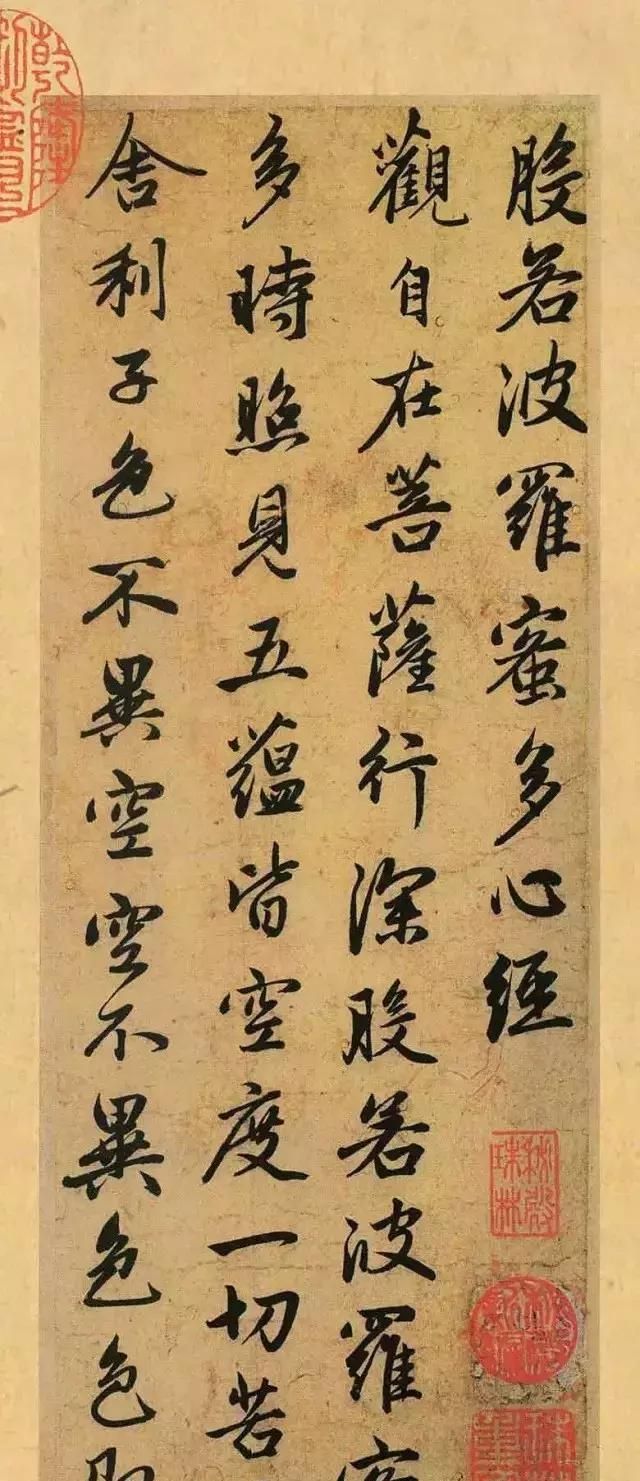 般若波羅蜜多心經
觀自在菩薩行深般若波羅
多時照見五蘊皆空度一切苦
舍利子色不異空空不異色色即
秘殿珠林
乾隆